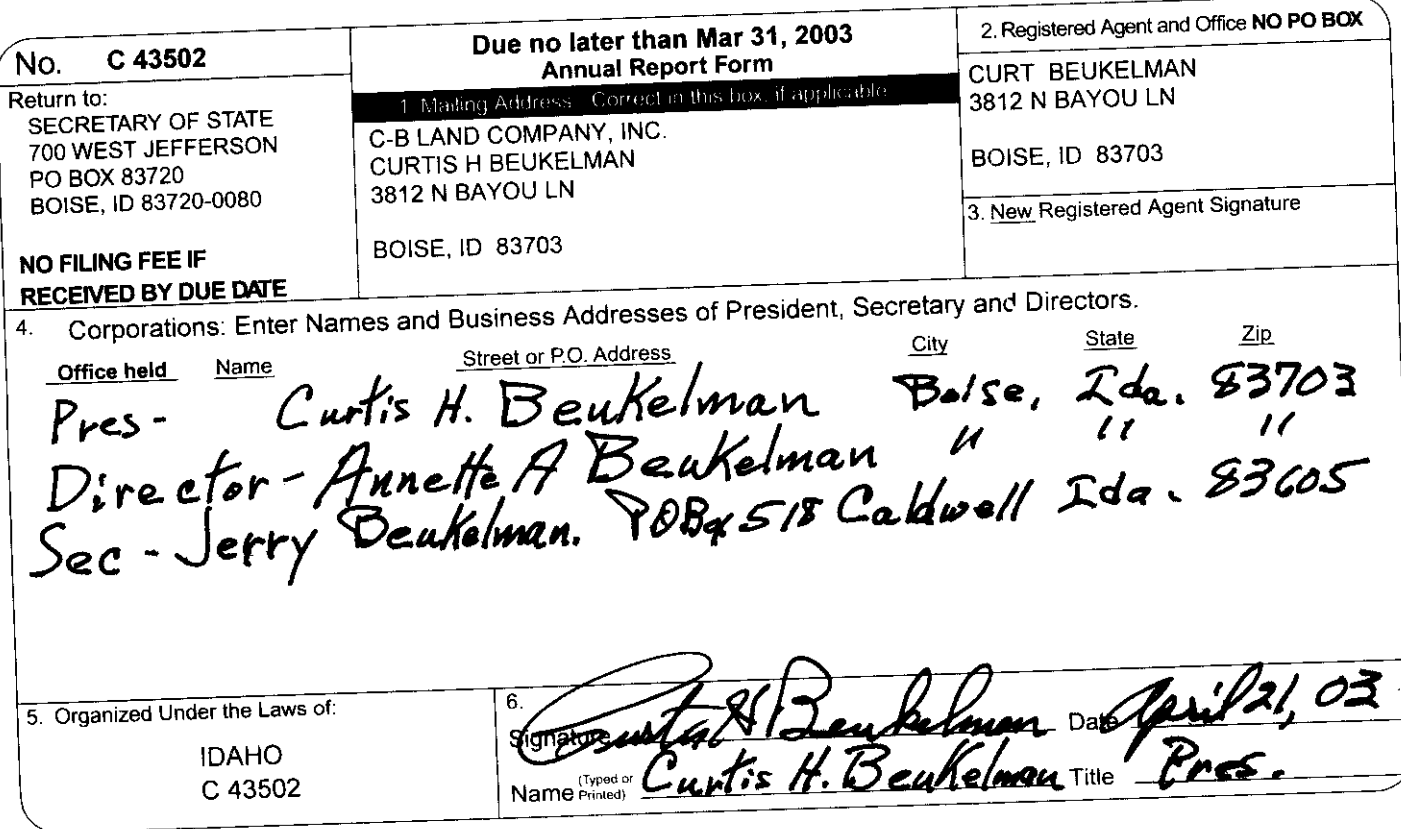 No. C 43502
Return to:
SECRETARY OF STATE
700 WEST JEFFERSON
PO BOX 83720
BOISE, ID 83720-0080
NO FILING FEE IF
RECEIVED BY DUE DATE
Due no later than Mar 31, 2003
Annual Report Form
1. Mailing Address - Correct in this box, if applicable
C-B LAND COMPANY, INC.
CURTIS H BEUKELMAN
3812 N BAYOU LN
BOISE, ID 83703
2. Registered Agent and Office NO PO BOX
CURT BEUKELMAN
3812 N BAYOU LN
BOISE, ID 83703
3. New Registered Agent Signature
4. Corporations: Enter Names and Business Addresses of President, Secretary and Directors.
Office held Name Street or P.O. Address City State Zip
Pres - Curtis H. Beukelman Boise, Ida. 83703
Director - Annette A Beukelman " " "
Sec - Jerry Beukelman. PO Box 518 Caldwell Ida. 83605
5. Organized Under the Laws of:
IDAHO
C 43502
6.
Signature Curtis H Beukelman Date April 21, 03
Name (Typed or Printed) Curtis H. Beukelman Title Pres.